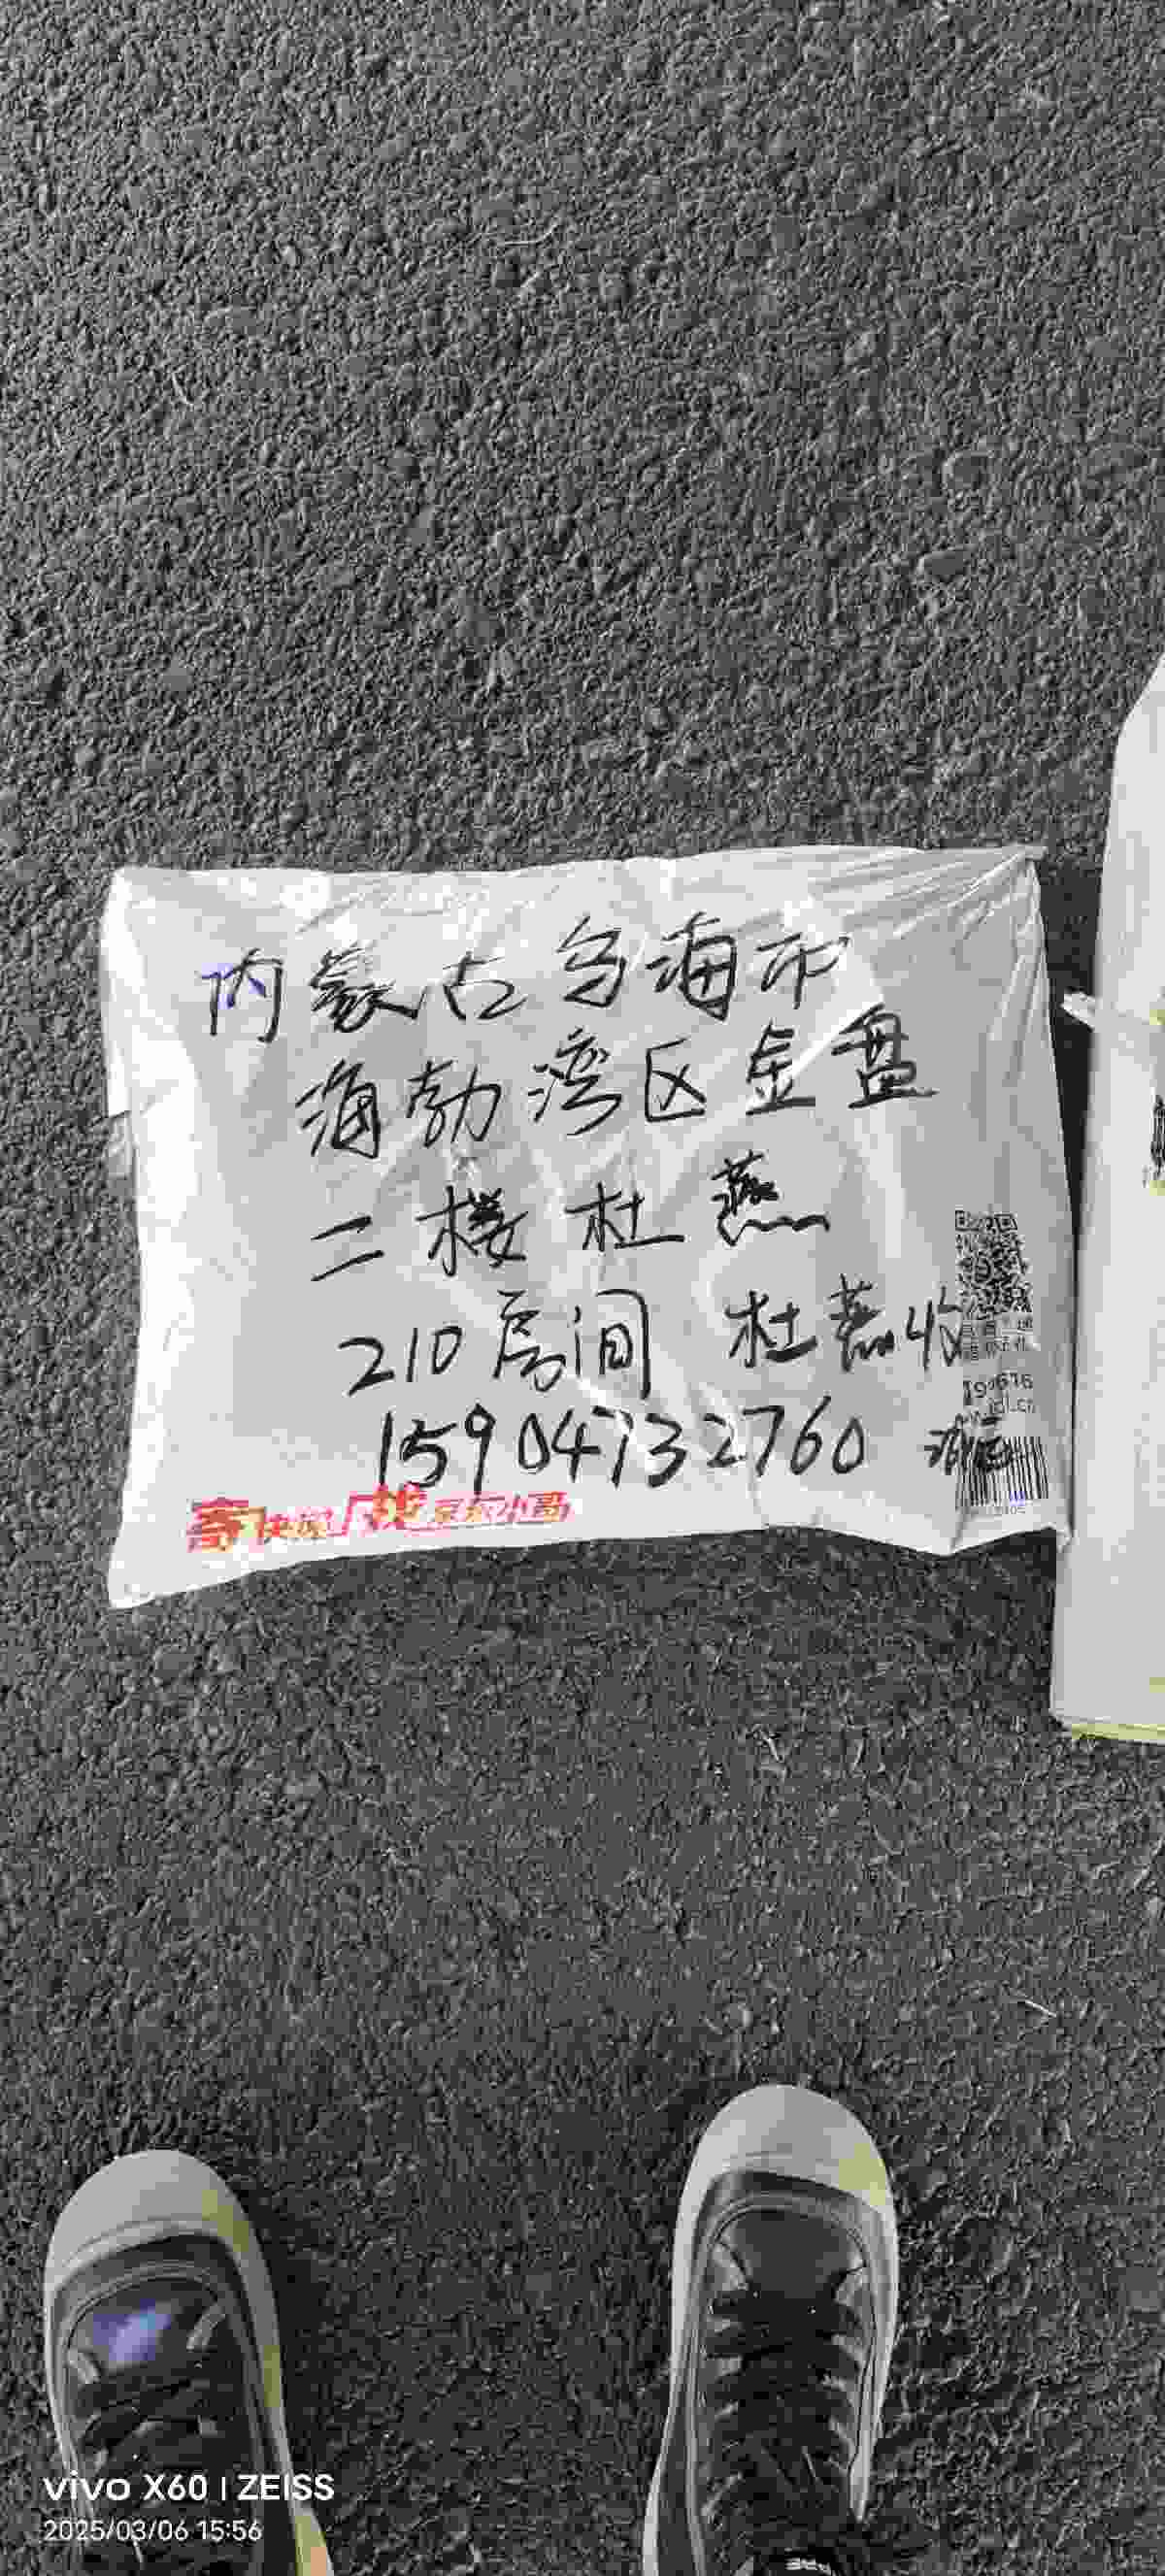 内蒙古乌海市
海勃湾区金盘
二楼杜燕
210房间 杜燕收
15904732760
寄快递 找京东小哥
vivo X60 | ZEISS
2025/03/06 15:56